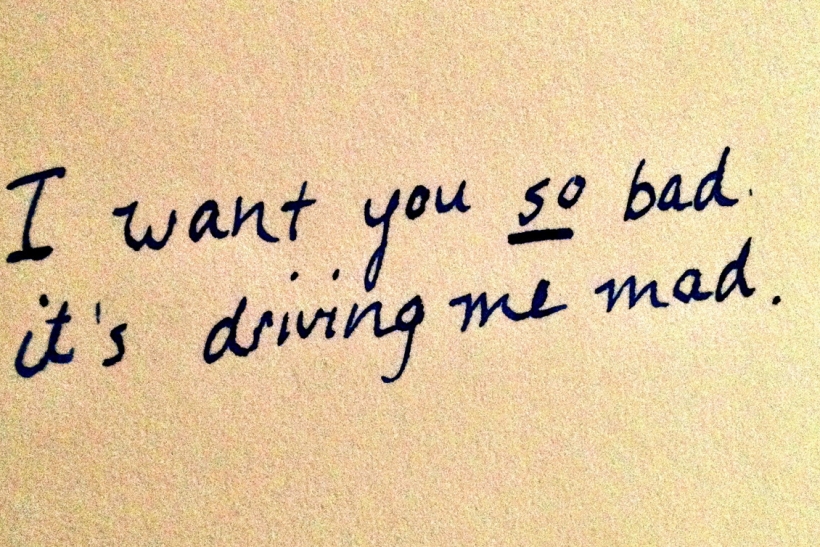 I want you so bad.
it's driving me mad.